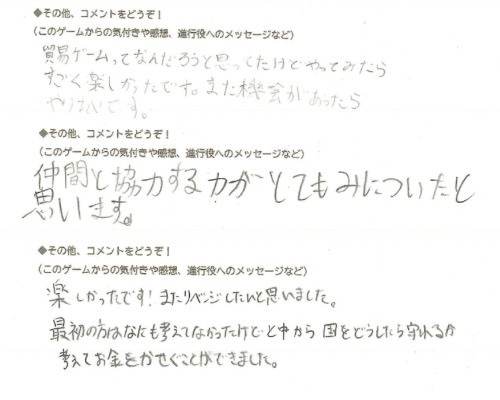 ◆その他、コメントをどうぞ!
(このゲームからの気付きや感想、進行役へのメッセージなど)
貿易ゲームってなんだろうと思ってたけどやってみたら
すごく楽しかったです。また機会があったら
やりたいです。
◆その他、コメントをどうぞ!
(このゲームからの気付きや感想、進行役へのメッセージなど)
仲間と協力する力がとてもみについたと
思います。
◆その他、コメントをどうぞ!
(このゲームからの気付きや感想、進行役へのメッセージなど)
楽しかったです!またリベンジしたいと思いました。
最初の方はなにも考えてなかったけど と中から 国をどうしたら守れるか
考えてお金をかせぐことができました。